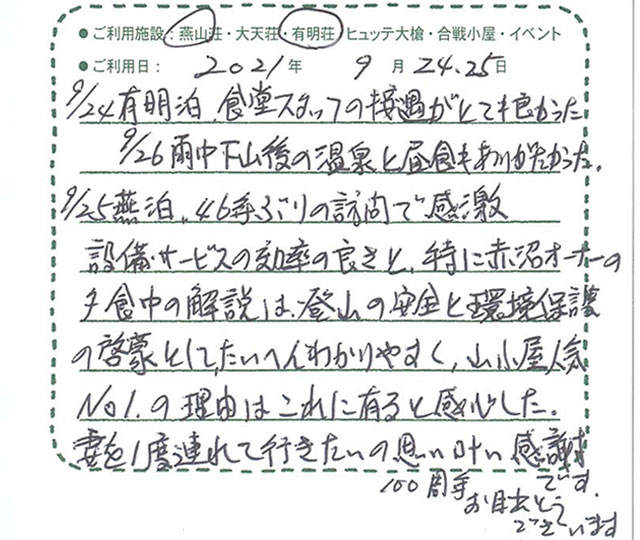 ● ご利用施設：燕山荘・大天荘・有明荘・ヒュッテ大槍・合戦小屋・イベント
● ご利用日： 2021 年 9 月 24.25 日
9/24 有明泊、食堂スタッフの接遇がとても良かった
9/26 雨中下山後の温泉と昼食もありがたかった。
9/25 燕泊、46年ぶりの訪問で感激
設備・サービスの効率の良さと、特に赤沼オーナーの
夕食中の解説は、登山の安全と環境保護
の啓蒙として、たいへんわかりやすく、山小屋人気
No1.の理由はこれに有ると感心した。
妻を1度連れて行きたいの思い叶い感謝
です.
100周年
お目出とう
ございます